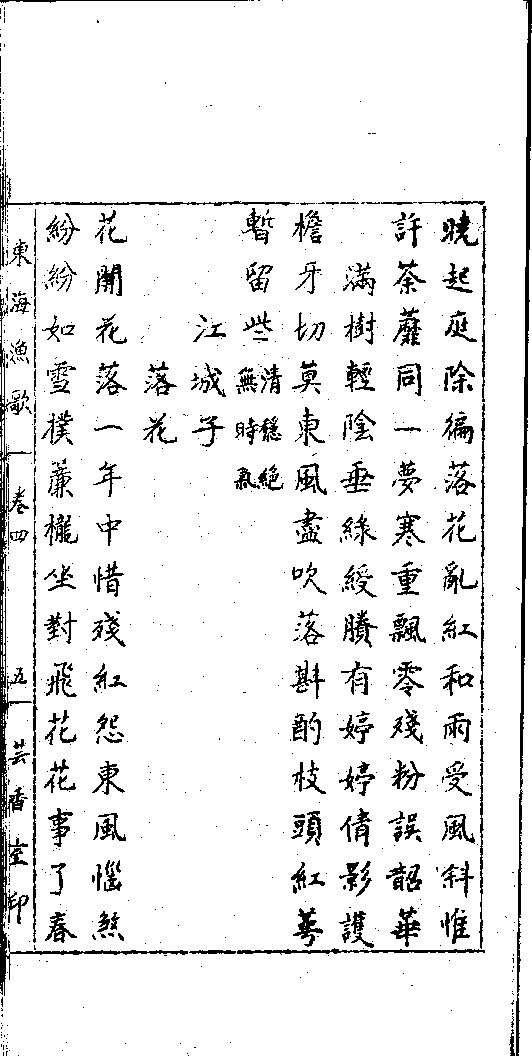 曉起庭除徧落花亂紅和雨受風斜惟
許荼蘼同一夢寒重飄零殘粉誤韶華
滿樹輕陰垂綠綬賸有婷婷倩影護
檐牙切莫東風盡吹落斟酌枝頭紅萼
暫留些
清穩絕
無時氣
江城子
落花
花開花落一年中惜殘紅怨東風惱煞
紛紛如雪撲簾櫳坐對飛花花事了春
東海漁歌 卷四 五 芸香室印